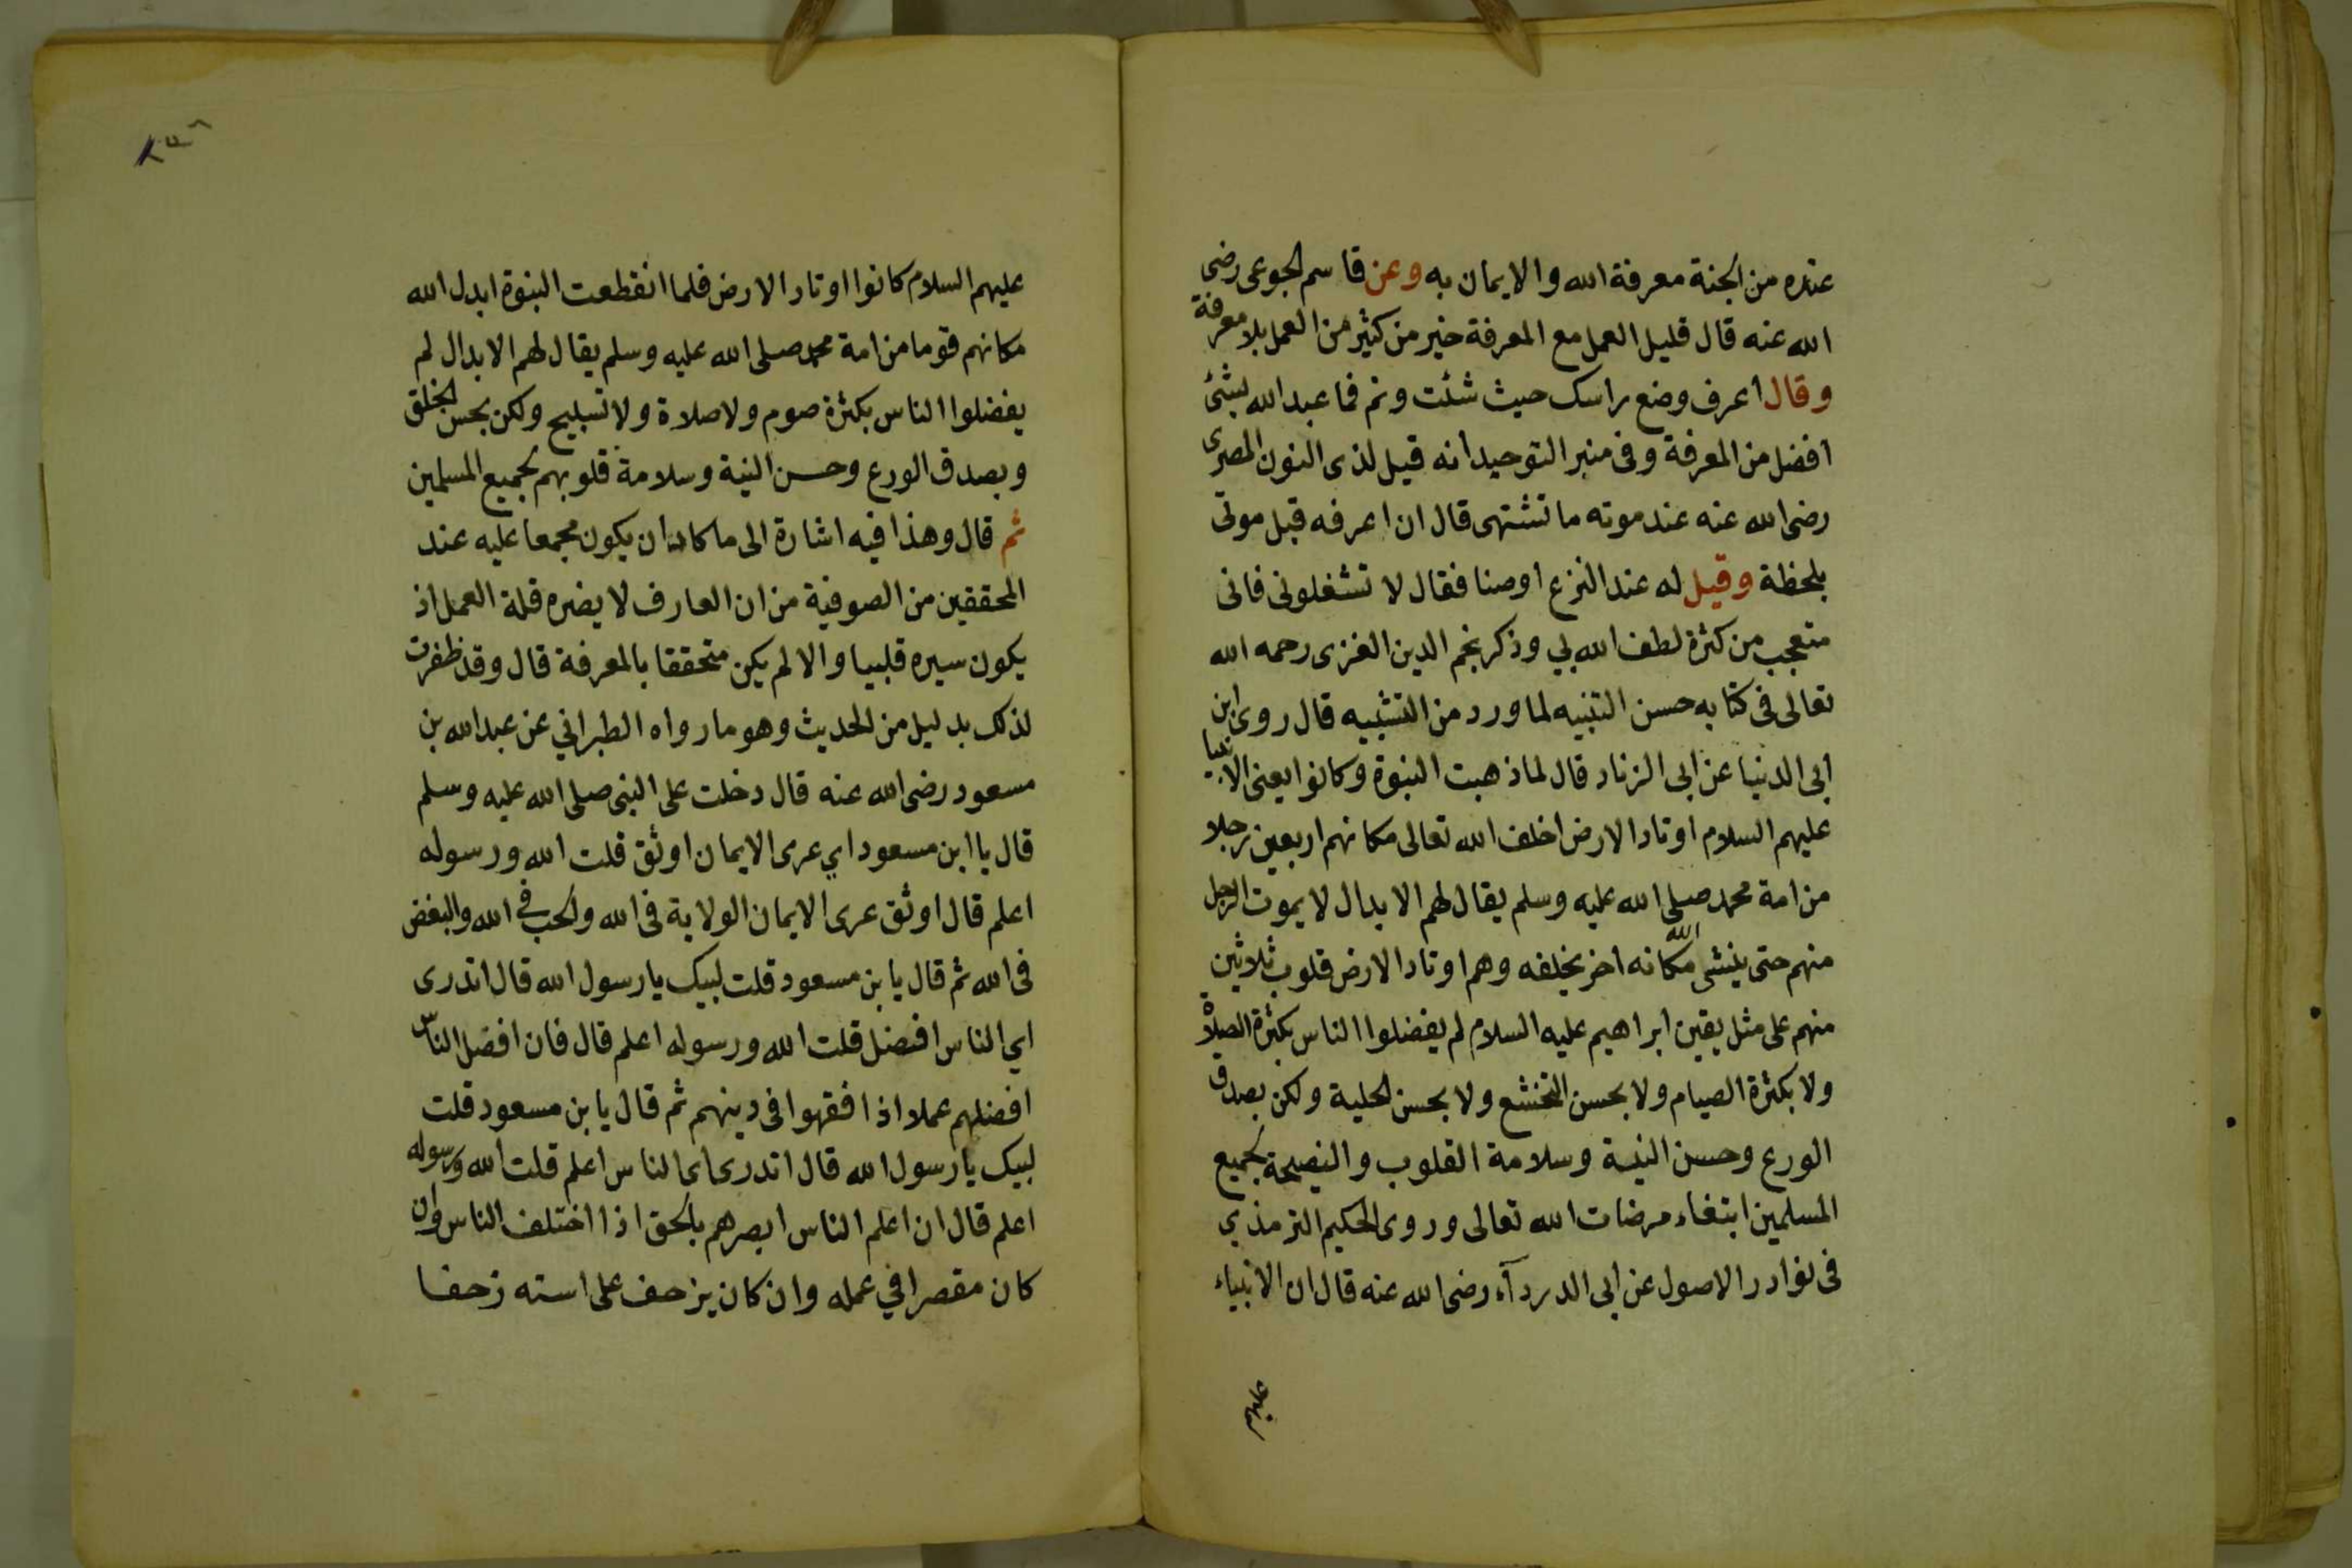 عنده من الجنة معرفة الله والايمان به وعن قاسم الجوعى رضى
الله عنه قال قليل العمل مع المعرفة خير من كثير من العمل بلا معرفة
وقال اعرف وضع راسك حيث شئت ونم فما عبد الله بشئ
افضل من المعرفة وفى منبر التوحيد انه قيل لذى النون المصرى
رضى الله عنه عند موته ما تشتهى قال ان اعرفه قبل موتى
بلحظة وقيل له عند النزع اوصنا فقال لا تشغلونى فانى
متعجب من كثرة لطف الله بي وذكر نجم الدين الغزى رحمه الله
تعالى فى كتابه حسن التنبيه لما ورد من التشبيه قال روى ابن
ابى الدنيا عن ابى الزناد قال لما ذهبت النبوة وكانوا يعنى الانبيا
عليهم السلام اوتاد الارض اخلف الله تعالى مكانهم اربعين رجلا
من امة محمد صلى الله عليه وسلم يقال لهم الابدال لا يموت الرجل
منهم حتى ينشى الله مكانه اخر يخلفه وهم اوتاد الارض قلوب ثلاثين
منهم على مثل يقين ابراهيم عليه السلام لم يفضلوا الناس بكثرة الصلاة
ولا بكثرة الصيام ولا بحسن التخشع ولا بحسن الحلية ولكن بصدق
الورع وحسن النية وسلامة القلوب والنصيحة لجميع
المسلمين ابتغاء مرضات الله تعالى وروى الحكيم الترمذي
فى نوادر الاصول عن ابى الدرداء رضى الله عنه قال ان الانبياء
عليهم
عليهم السلام كانوا اوتاد الارض فلما انقطعت النبوة ابدل الله
مكانهم قوما من امة محمد صلى الله عليه وسلم يقال لهم الابدال لم
يفضلوا الناس بكثرة صوم ولا صلاة ولا تسبيح ولكن بحسن الخلق
وبصدق الورع وحسن النية وسلامة قلوبهم لجميع المسلمين
ثم قال وهذا فيه اشارة الى ما كاد ان يكون مجمعا عليه عند
المحققين من الصوفية من ان العارف لا يضره قلة العمل اذ
يكون سيره قلبيا والا لم يكن متحققا بالمعرفة قال وقد ظفرت
لذلك بدليل من الحديث وهو ما رواه الطبراني عن عبد الله بن
مسعود رضى الله عنه قال دخلت على النبى صلى الله عليه وسلم
قال يا ابن مسعود اي عرى الايمان اوثق قلت الله ورسوله
اعلم قال اوثق عرى الايمان الولاية فى الله والحب في الله والبغض
فى الله ثم قال يا بن مسعود قلت لبيك يا رسول الله قال اتدرى
اي الناس افضل قلت الله ورسوله اعلم قال فان افضل الناس
افضلهم عملا اذا فقهوا فى دينهم ثم قال يا بن مسعود قلت
لبيك يا رسول الله قال اتدرى اى الناس اعلم قلت الله ورسوله
اعلم قال ان اعلم الناس ابصرهم بالحق اذا اختلف الناس وان
كان مقصرا في عمله وان كان يزحف على استه زحفا